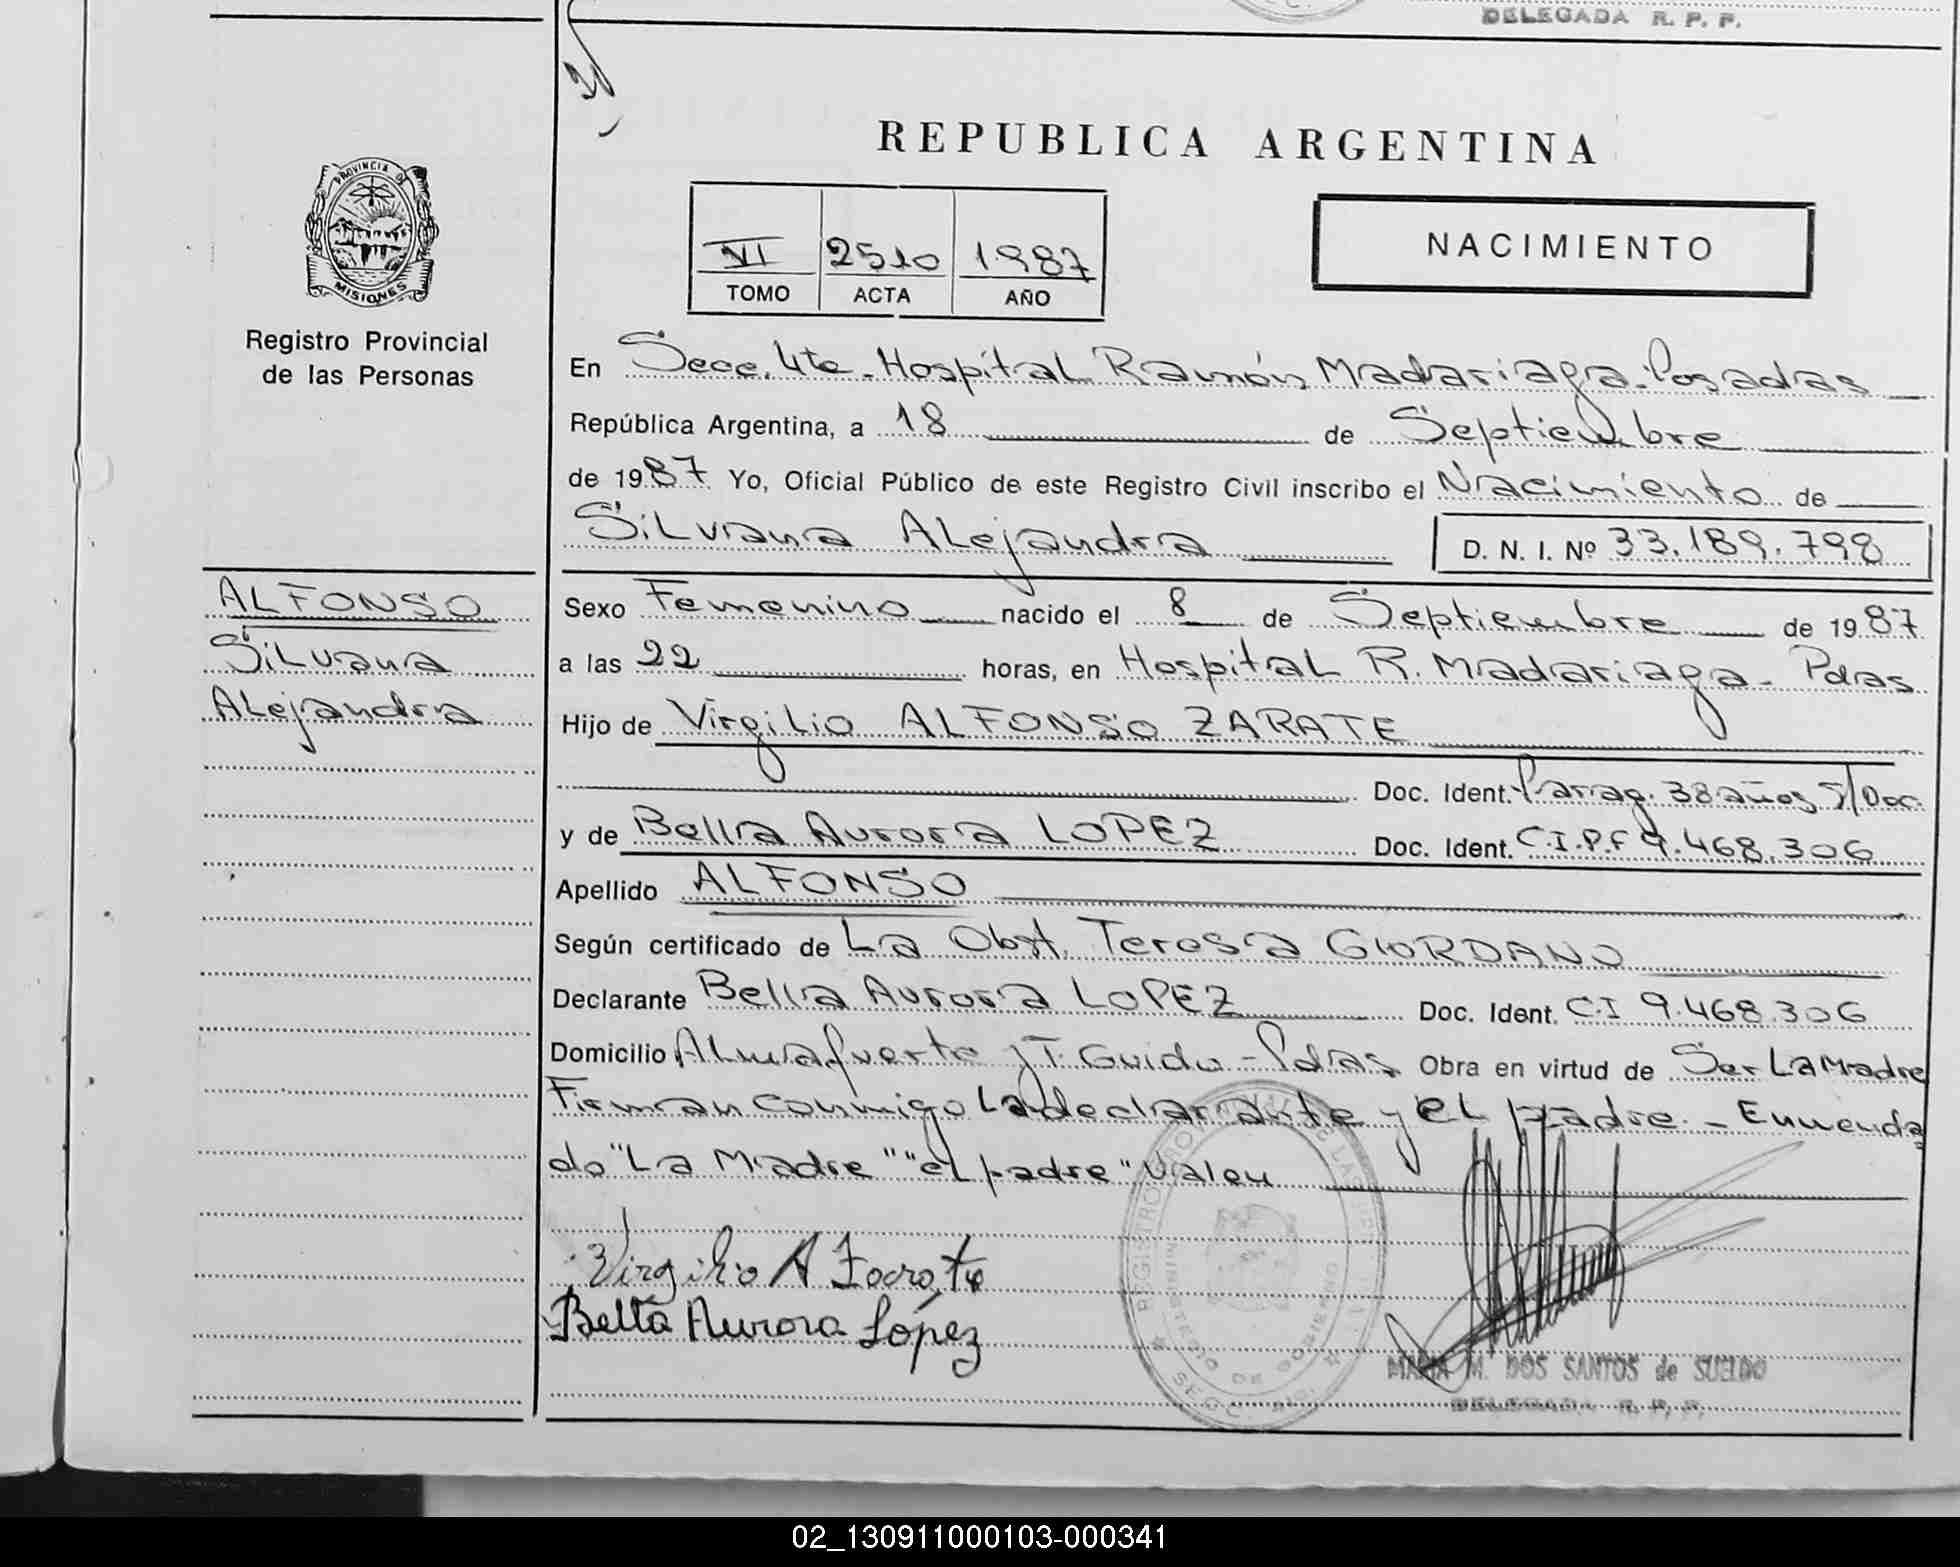 DELEGADA R. P. P.
REPUBLICA ARGENTINA
PROVINCIA DE
MISIONES
Registro Provincial
de las Personas
VI 2510 1987
TOMO ACTA AÑO
NACIMIENTO
En Secc. 4ta. Hospital Ramón Madariaga. Posadas
República Argentina, a 18 de Septiembre
de 1987 Yo, Oficial Público de este Registro Civil inscribo el Nacimiento de
Silvana Alejandra D. N. I. Nº 33.189.798
ALFONSO
Silvana
Alejandra
Sexo Femenino nacido el 8 de Septiembre de 1987
a las 22 horas, en Hospital R. Madariaga - Pdas
Hijo de Virgilio ALFONSO ZARATE
Doc. Ident. Parag. 38 años S/Doc.
y de Bella Aurora LOPEZ Doc. Ident. C.I.P.F 9.468.306
Apellido ALFONSO
Según certificado de La Obst. Teresa GIORDANO
Declarante Bella Aurora LOPEZ Doc. Ident. C.I 9.468.306
Domicilio Almafuerte y T. Guido - Pdas Obra en virtud de Ser La Madre
Firman conmigo La declarante y el padre. - Enmenda
do "La Madre" "el padre" Valen
Virgilio A Zarate
Bella Aurora López
MARIA M. DOS SANTOS de SUELDO
DELEGADA R. P. P.
02_130911000103-000341